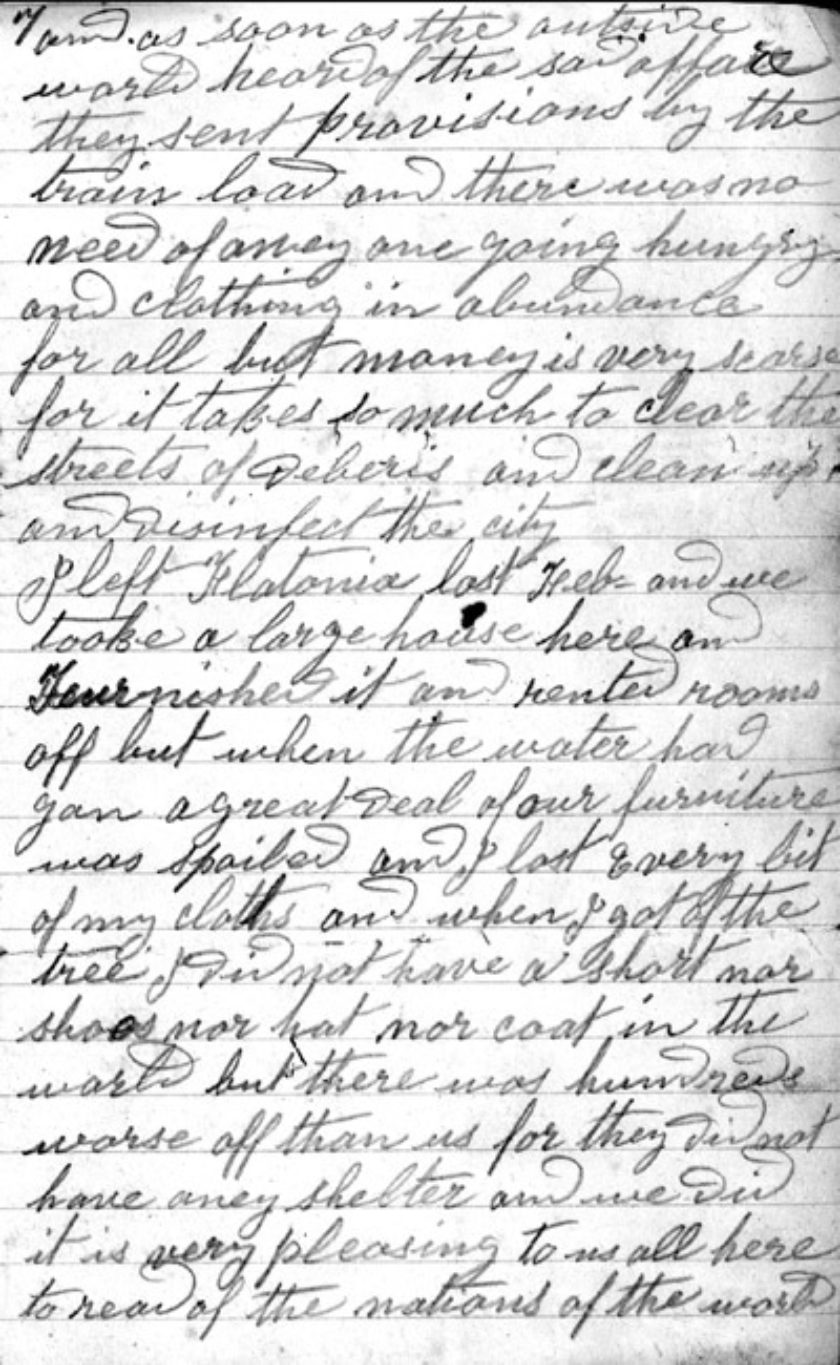 7 and as soon as the outside
world heard of the sad affare
they sent provisions by the
train load and there was no
need of aney one going hungry
and clothing in abundance
for all but money is very scarse
for it takes so much to clear the
streets of deberis and clean up
and disinfect the city
I left Flatonia last Feb- and we
tooke a large house here and
Feurnished it and rented rooms
off but when the water had
gon a great deal of our furniture
was spoiled and I lost Every bit
of my cloths and when I got of the
tree I did not have a short nor
shoes nor hat nor coat in the
world but there was hundreds
worse off than us for they did not
have aney shelter and we did
it is very pleasing to us all here
to read of the nations of the world